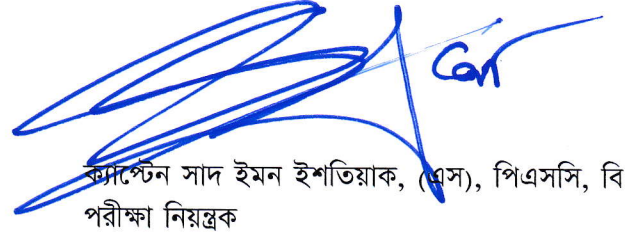 ক্যাপ্টেন সাদ ইমন ইশতিয়াক, (এস), পিএসসি, বি
পরীক্ষা নিয়ন্ত্রক